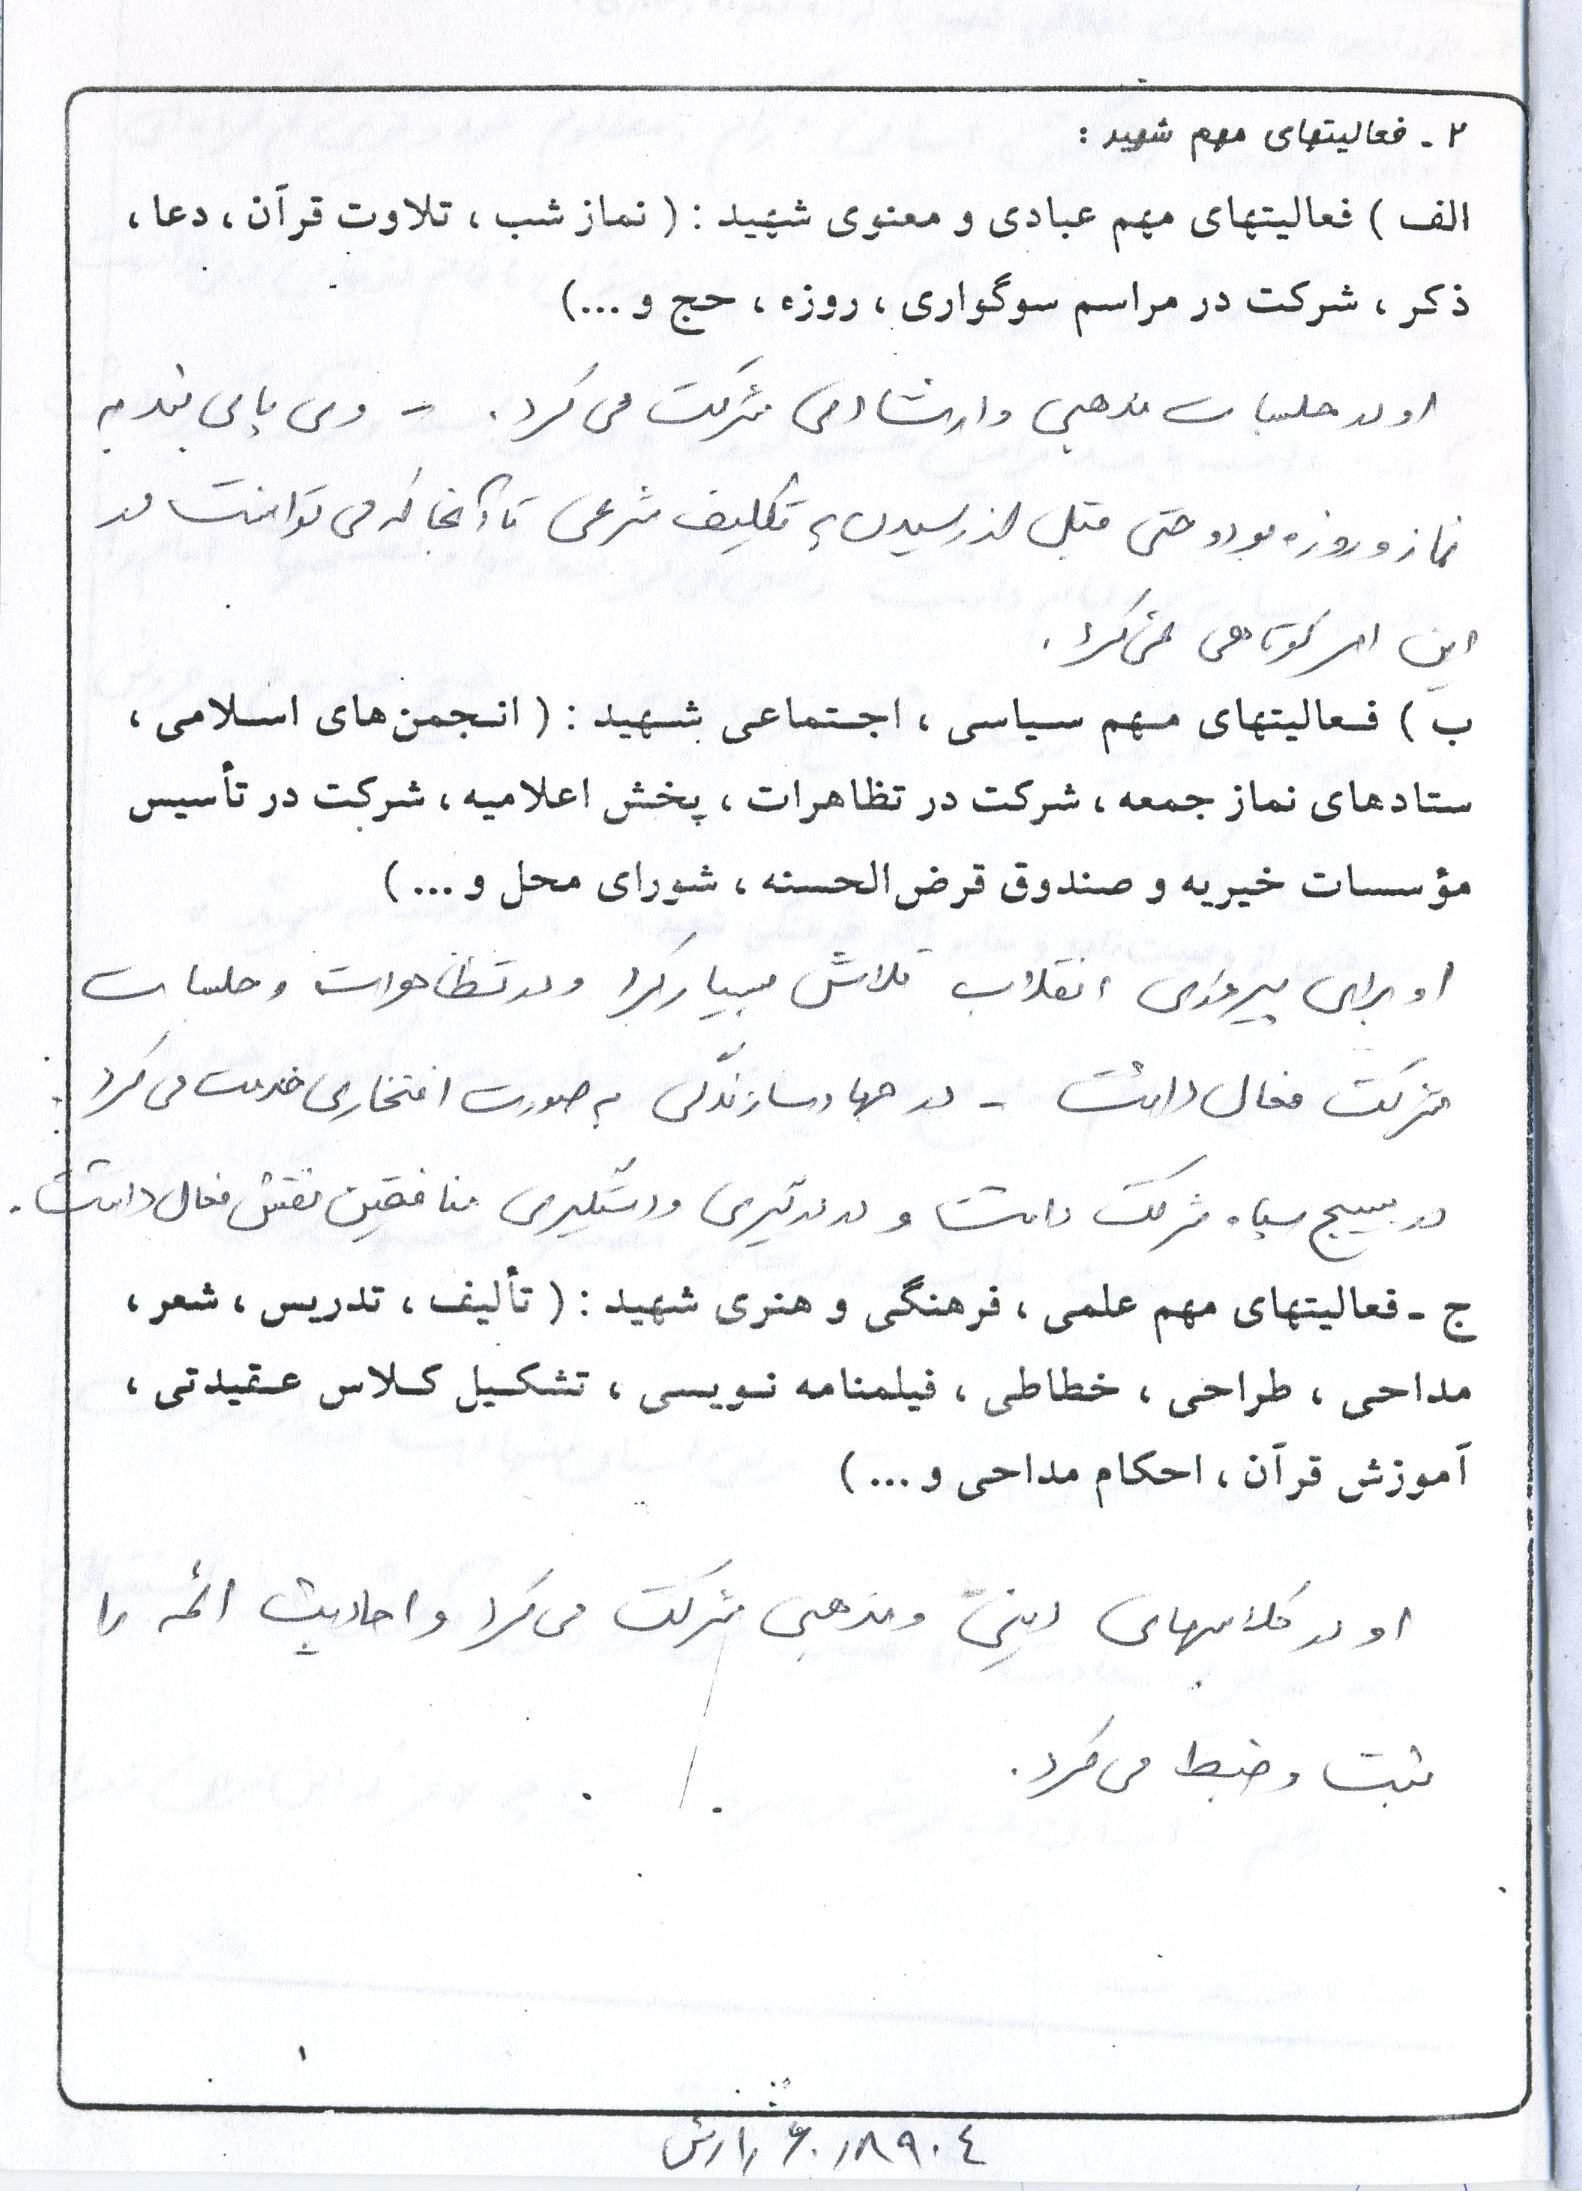 ۲ ـ فعالیتهای مهم شهید :
الف ) فعالیتهای مهم عبادی و معنوی شهید : ( نماز شب ، تلاوت قرآن ، دعا ،
ذکر ، شرکت در مراسم سوگواری ، روزه ، حج و ...)
او در جلسات مذهبی و ارشادی شرکت می کرد . - وی پای بند به
نماز و روزه بود و حتی قبل از رسیدن به تکلیف شرعی تا آنجا که می توانست در
این امر کوتاهی نمی کرد .
ب ) فعالیتهای مهم سیاسی ، اجتماعی شهید : ( انجمن های اسلامی ،
ستادهای نماز جمعه ، شرکت در تظاهرات ، پخش اعلامیه ، شرکت در تأسیس
مؤسسات خیریه و صندوق قرض الحسنه ، شورای محل و ... )
او برای پیروزی انقلاب تلاش بسیار کرد و در تظاهرات و جلسات
شرکت فعال داشت - در جهاد سازندگی به صورت افتخاری خدمت می کرد .
در بسیج سپاه شرکت داشت و در درگیری و دستگیری منافقین نقش فعال داشت .
ج ـ فعالیتهای مهم علمی ، فرهنگی و هنری شهید : ( تألیف ، تدریس ، شعر ،
مداحی ، طراحی ، خطاطی ، فیلمنامه نویسی ، تشکیل کلاس عقیدتی ،
آموزش قرآن ، احکام مداحی و ... )
او در کلاسهای دینی و مذهبی شرکت می کرد و احادیث ائمه را
ثبت و ضبط می کرد .